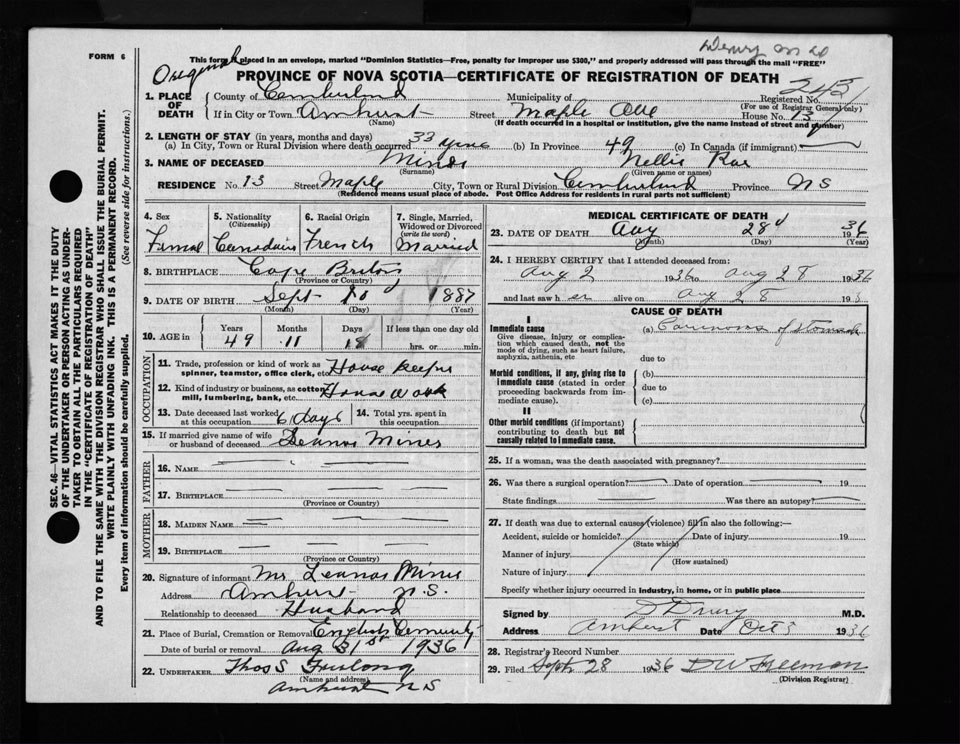 Drury
FORM 6
This form if placed in an envelope, marked "Dominion Statistics—Free, penalty for improper use $300," and properly addressed will pass through the mail "FREE"
Original
PROVINCE OF NOVA SCOTIA—CERTIFICATE OF REGISTRATION OF DEATH
1. PLACE OF DEATH
County of Cumberland Municipality of Registered No. 243
(For use of Registrar General only)
If in City or Town Amherst Street Maple Ave House No. 13
(Name) (If death occurred in a hospital or institution, give the name instead of street and number)
2. LENGTH OF STAY (in years, months and days)
(a) In City, Town or Rural Division where death occurred 33 yrs (b) In Province 49 (c) In Canada (if immigrant)
3. NAME OF DECEASED Mines Nellie Rae
(Surname) (Given name or names)
RESIDENCE No. 13 Street Maple City, Town or Rural Division Cumberland Province N S
(Residence means usual place of abode. Post Office Address for residents in rural parts not sufficient)
4. Sex
Femal
5. Nationality (Citizenship)
Canadain
6. Racial Origin
French
7. Single, Married, Widowed or Divorced (write the word)
Married
8. BIRTHPLACE Cape Breton
(Province or Country)
9. DATE OF BIRTH Sept 10 1887
(Month) (Day) (Year)
10. AGE in
Years Months Days If less than one day old
49 11 18 hrs. or min.
OCCUPATION
11. Trade, profession or kind of work as spinner, teamster, office clerk, etc. House Keeper
12. Kind of industry or business, as cotton mill, lumbering, bank, etc. House Work
13. Date deceased last worked at this occupation 6 days
14. Total yrs. spent in this occupation
15. If married give name of wife or husband of deceased Leanos Mines
FATHER
16. NAME
17. BIRTHPLACE
(Province or Country)
MOTHER
18. MAIDEN NAME
19. BIRTHPLACE
(Province or Country)
20. Signature of informant Mr Leanos Mines
Address Amherst N.S.
Relationship to deceased Husband
21. Place of Burial, Cremation or Removal English Cemetery
Date of burial or removal Aug 31st 1936
22. UNDERTAKER Thos S Furlong
(Name and address)
Amherst N S
MEDICAL CERTIFICATE OF DEATH
23. DATE OF DEATH Aug 28 1936
(Month) (Day) (Year)
24. I HEREBY CERTIFY that I attended deceased from:
Aug 2 1936 to Aug 28 1936
and last saw h er alive on Aug 28 193
CAUSE OF DEATH
I
Immediate cause
Give disease, injury or complication which caused death, not the mode of dying, such as heart failure, asphyxia, asthenia, etc
(a) Carcinoma of stomach
due to
Morbid conditions, if any, giving rise to immediate cause (stated in order proceeding backwards from immediate cause).
(b)
due to
(c)
II
Other morbid conditions (if important) contributing to death but not causally related to immediate cause.
25. If a woman, was the death associated with pregnancy?
26. Was there a surgical operation? Date of operation 19
State findings Was there an autopsy?
27. If death was due to external causes (violence) fill in also the following:—
Accident, suicide or homicide? Date of injury 19
(State which)
Manner of injury
(How sustained)
Nature of injury
Specify whether injury occurred in industry, in home, or in public place
Signed by D Drury M.D.
Address Amherst Date Oct 3 1936
28. Registrar's Record Number
29. Filed Sept 28 1936 D W Freeman
(Division Registrar)
SEC. 46—VITAL STATISTICS ACT MAKES IT THE DUTY OF THE UNDERTAKER OR PERSON ACTING AS UNDERTAKER TO OBTAIN ALL THE PARTICULARS REQUIRED IN THE "CERTIFICATE OF REGISTRATION OF DEATH" AND TO FILE THE SAME WITH THE DIVISION REGISTRAR WHO SHALL ISSUE THE BURIAL PERMIT.
WRITE PLAINLY WITH UNFADING INK. THIS IS A PERMANENT RECORD.
Every item of information should be carefully supplied. (See reverse side for instructions.)